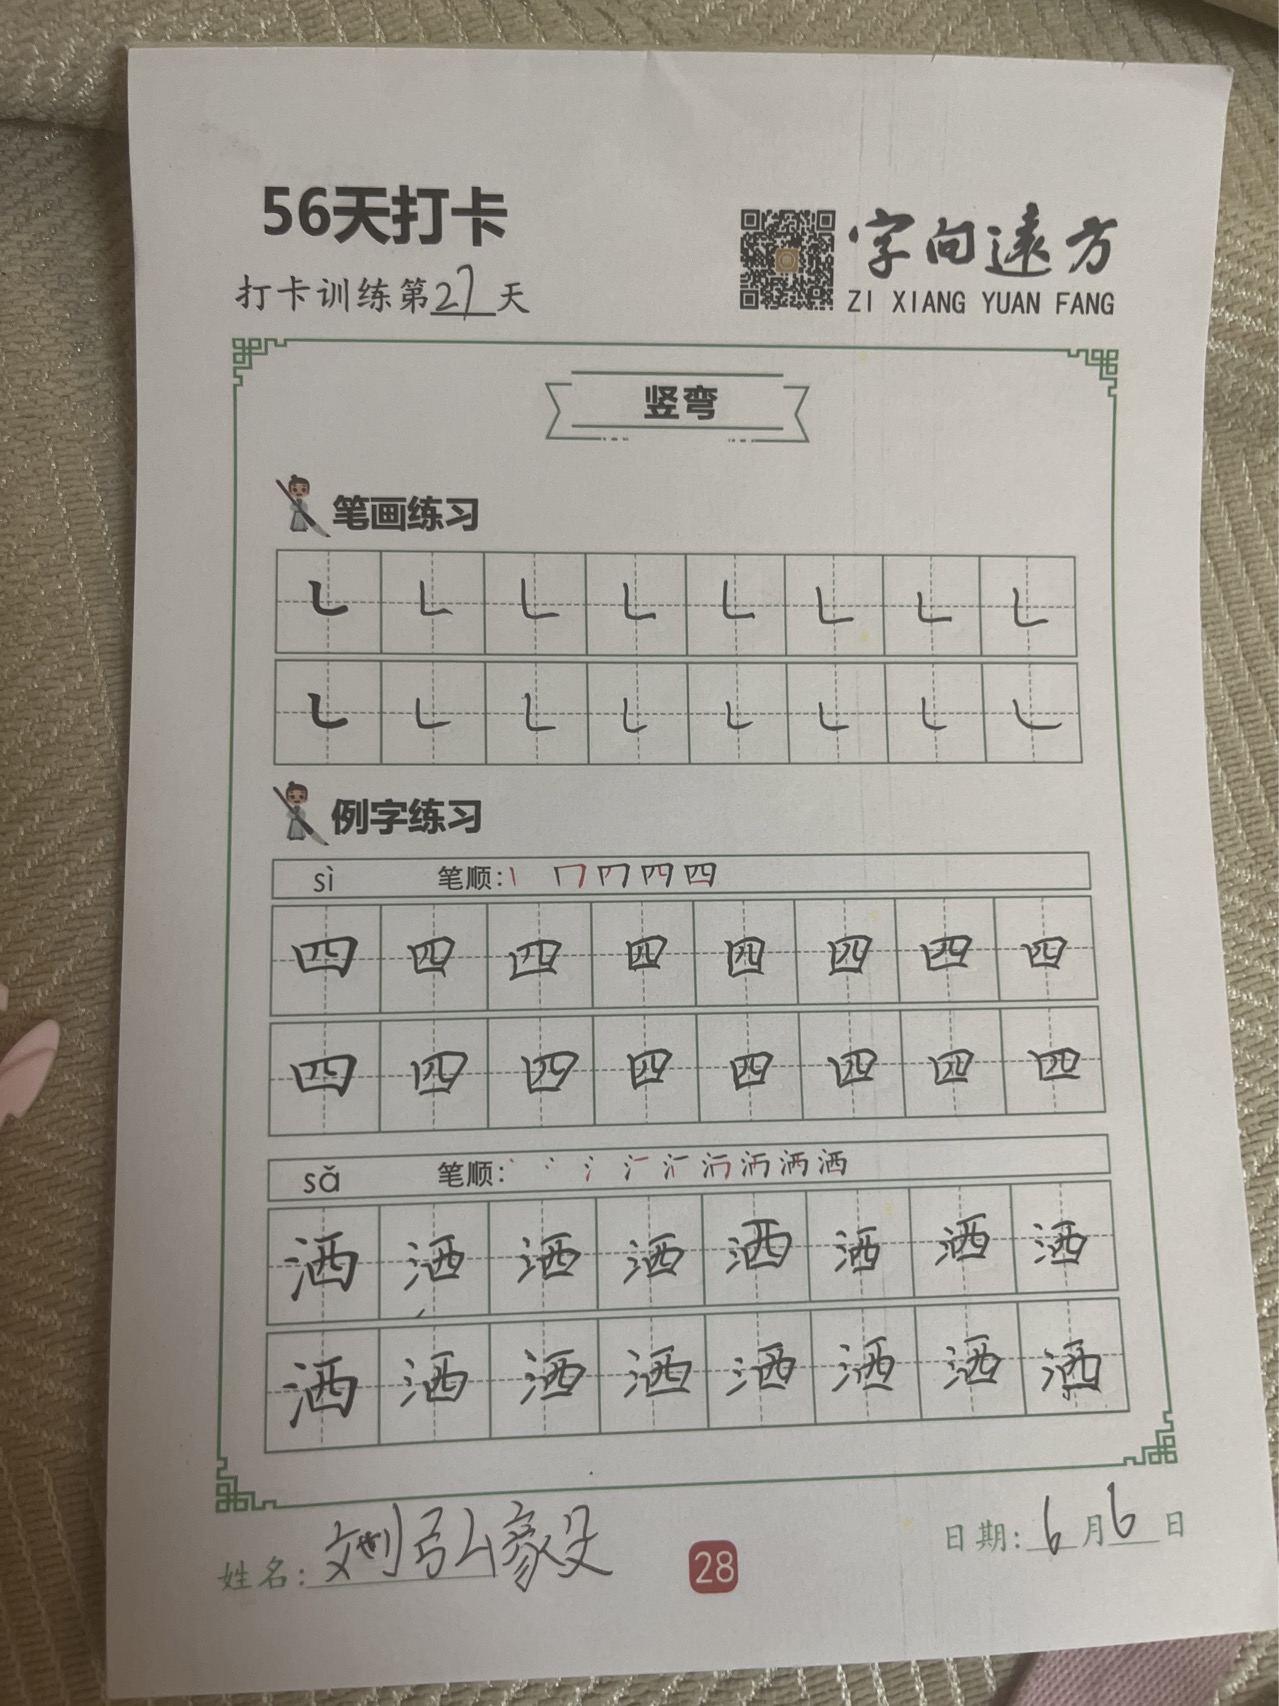 56天打卡
字向遠方
打卡训练第27天
ZI XIANG YUAN FANG
竖弯
笔画练习
例字练习
sì 笔顺:
四 四 四 四 四 四 四 四
四 四 四 四 四 四 四 四
sǎ 笔顺:
洒 洒 洒 洒 洒 洒 洒 洒
洒 洒 洒 洒 洒 洒 洒 洒
姓名:刘弘毅
28
日期:6月6日